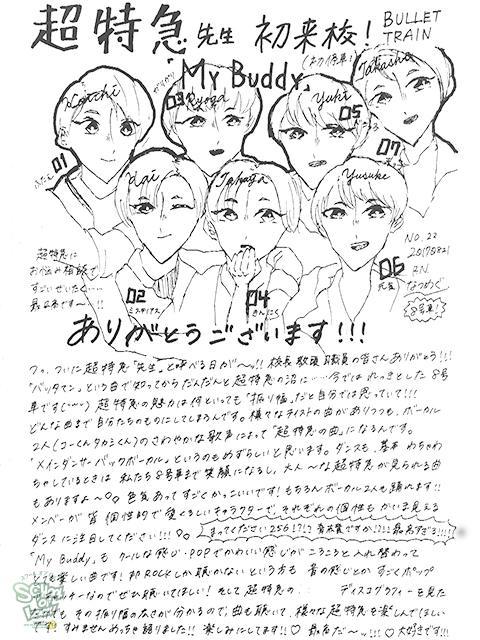 超特急先生 初来校!
BULLET TRAIN
「My Buddy」
Koichi
Ryoga
Yuki
Takashi
Kai
Takuya
Yusuke
01
03
05
07
02
ミステリアス
04
きんにく
06
元気
超特急に
お悩み相談で
すごいぜいたく…
最高です〜!!
NO.22
20170821
R.N.
なつめぐ
8号車!
ありがとうございます!!!
つっ、ついに超特急「先生」と呼べる日が〜!! 校長教頭職員の皆さんありがとう!!!
「バッタマン」という曲で知ってからだんだんと超特急の沼に……今ではれっきとした8号
車です 超特急の魅力は何といっても「振り幅」だと自分では思っていて!!!
どんな曲まで自分たちのものにしてしまうんです。様々なテイストの曲がありつつも、ボーカル
2人(コーイチくんタカシくん)のさわやかな歌声によって「超特急の曲」になるんです。
「メインダンサーバックボーカル」というのもめずらしいと思います。ダンスも、基本わちゃわ
ちゃしているときは 私たち8号車まで笑顔になるし、大人〜な超特急が見られる曲
もありますよ〜♡♡ 色気あってすごくかっこいいです! もちろんボーカル2人も踊れます!!
メンバーが皆個性的で愛くるしいキャラクターで、それぞれの個性もかいま見える
ダンスに注目してください!!!♡
まってください256!?!?
最高すぎる!!!!!
「My Buddy」も クールな感じ・POPでかわいい感じがころころと入れ替わって
とても楽しい曲です! 邦ROCKしか聴かないという方も 音の感じとかすごくポップ
なのでぜひ聴いてほしい! そして超特急の:: ディスコグラフィーを見た
だけでも その振り幅の広さが分かるので、曲も聴いて、様々な超特急を楽しんでほしい
です! すみませんめっちゃ語りました!! 楽しみにしてます!!♡ 最高だ〜ッ!!!♡大好きです!!!